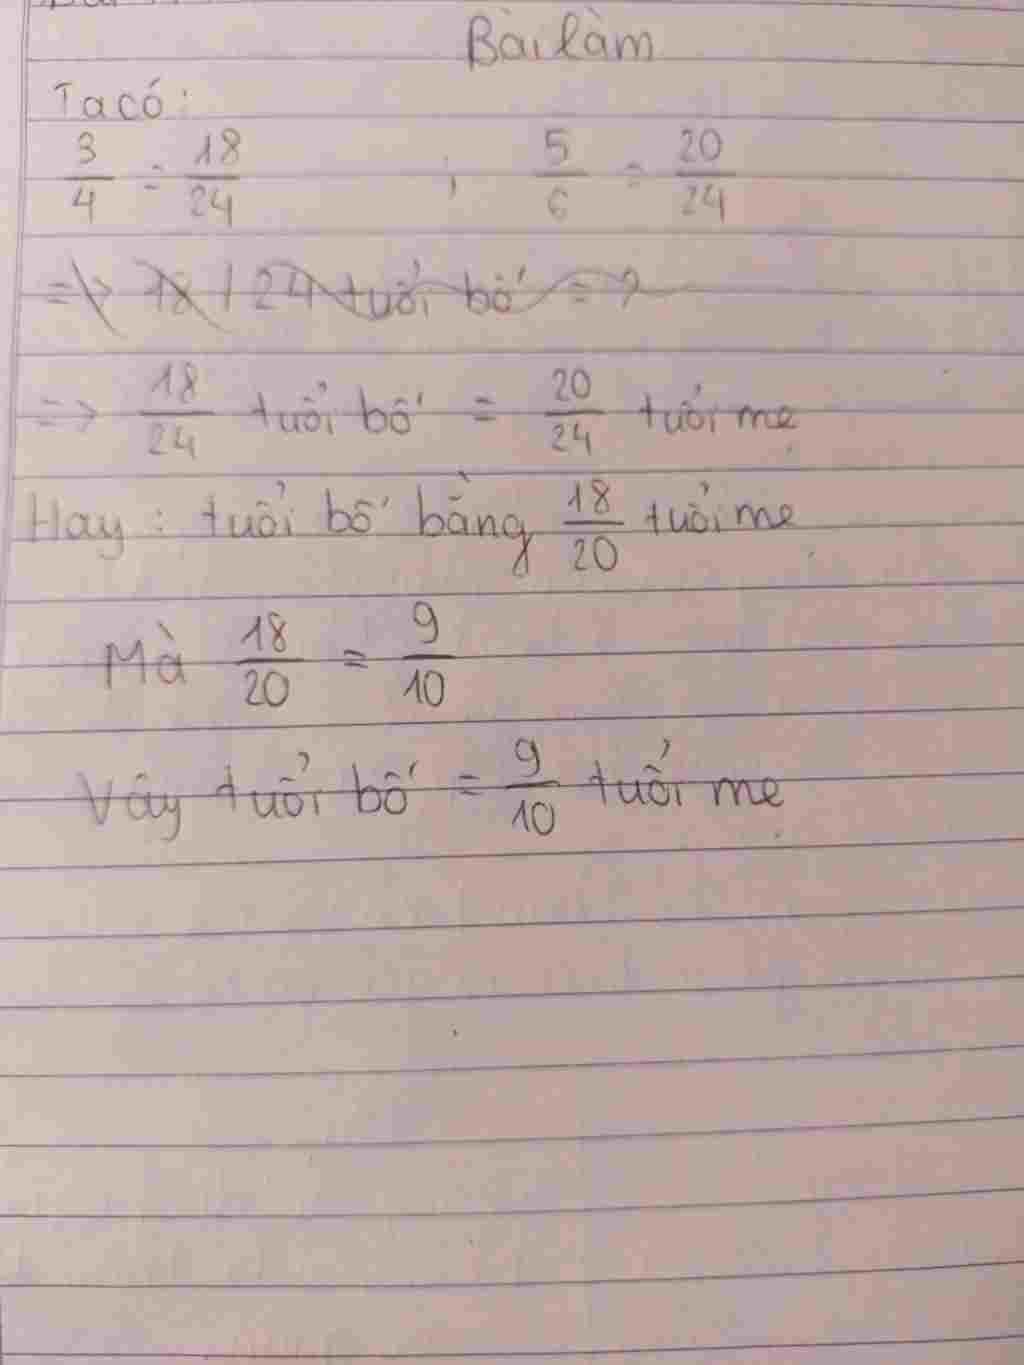 Bài làm
Ta có:
3/4 = 18/24 ; 5/6 = 20/24
=> 18/24 tuổi bố = ?
=> 18/24 tuổi bố = 20/24 tuổi mẹ
Hay : tuổi bố bằng 18/20 tuổi mẹ
Mà 18/20 = 9/10
Vậy tuổi bố = 9/10 tuổi mẹ